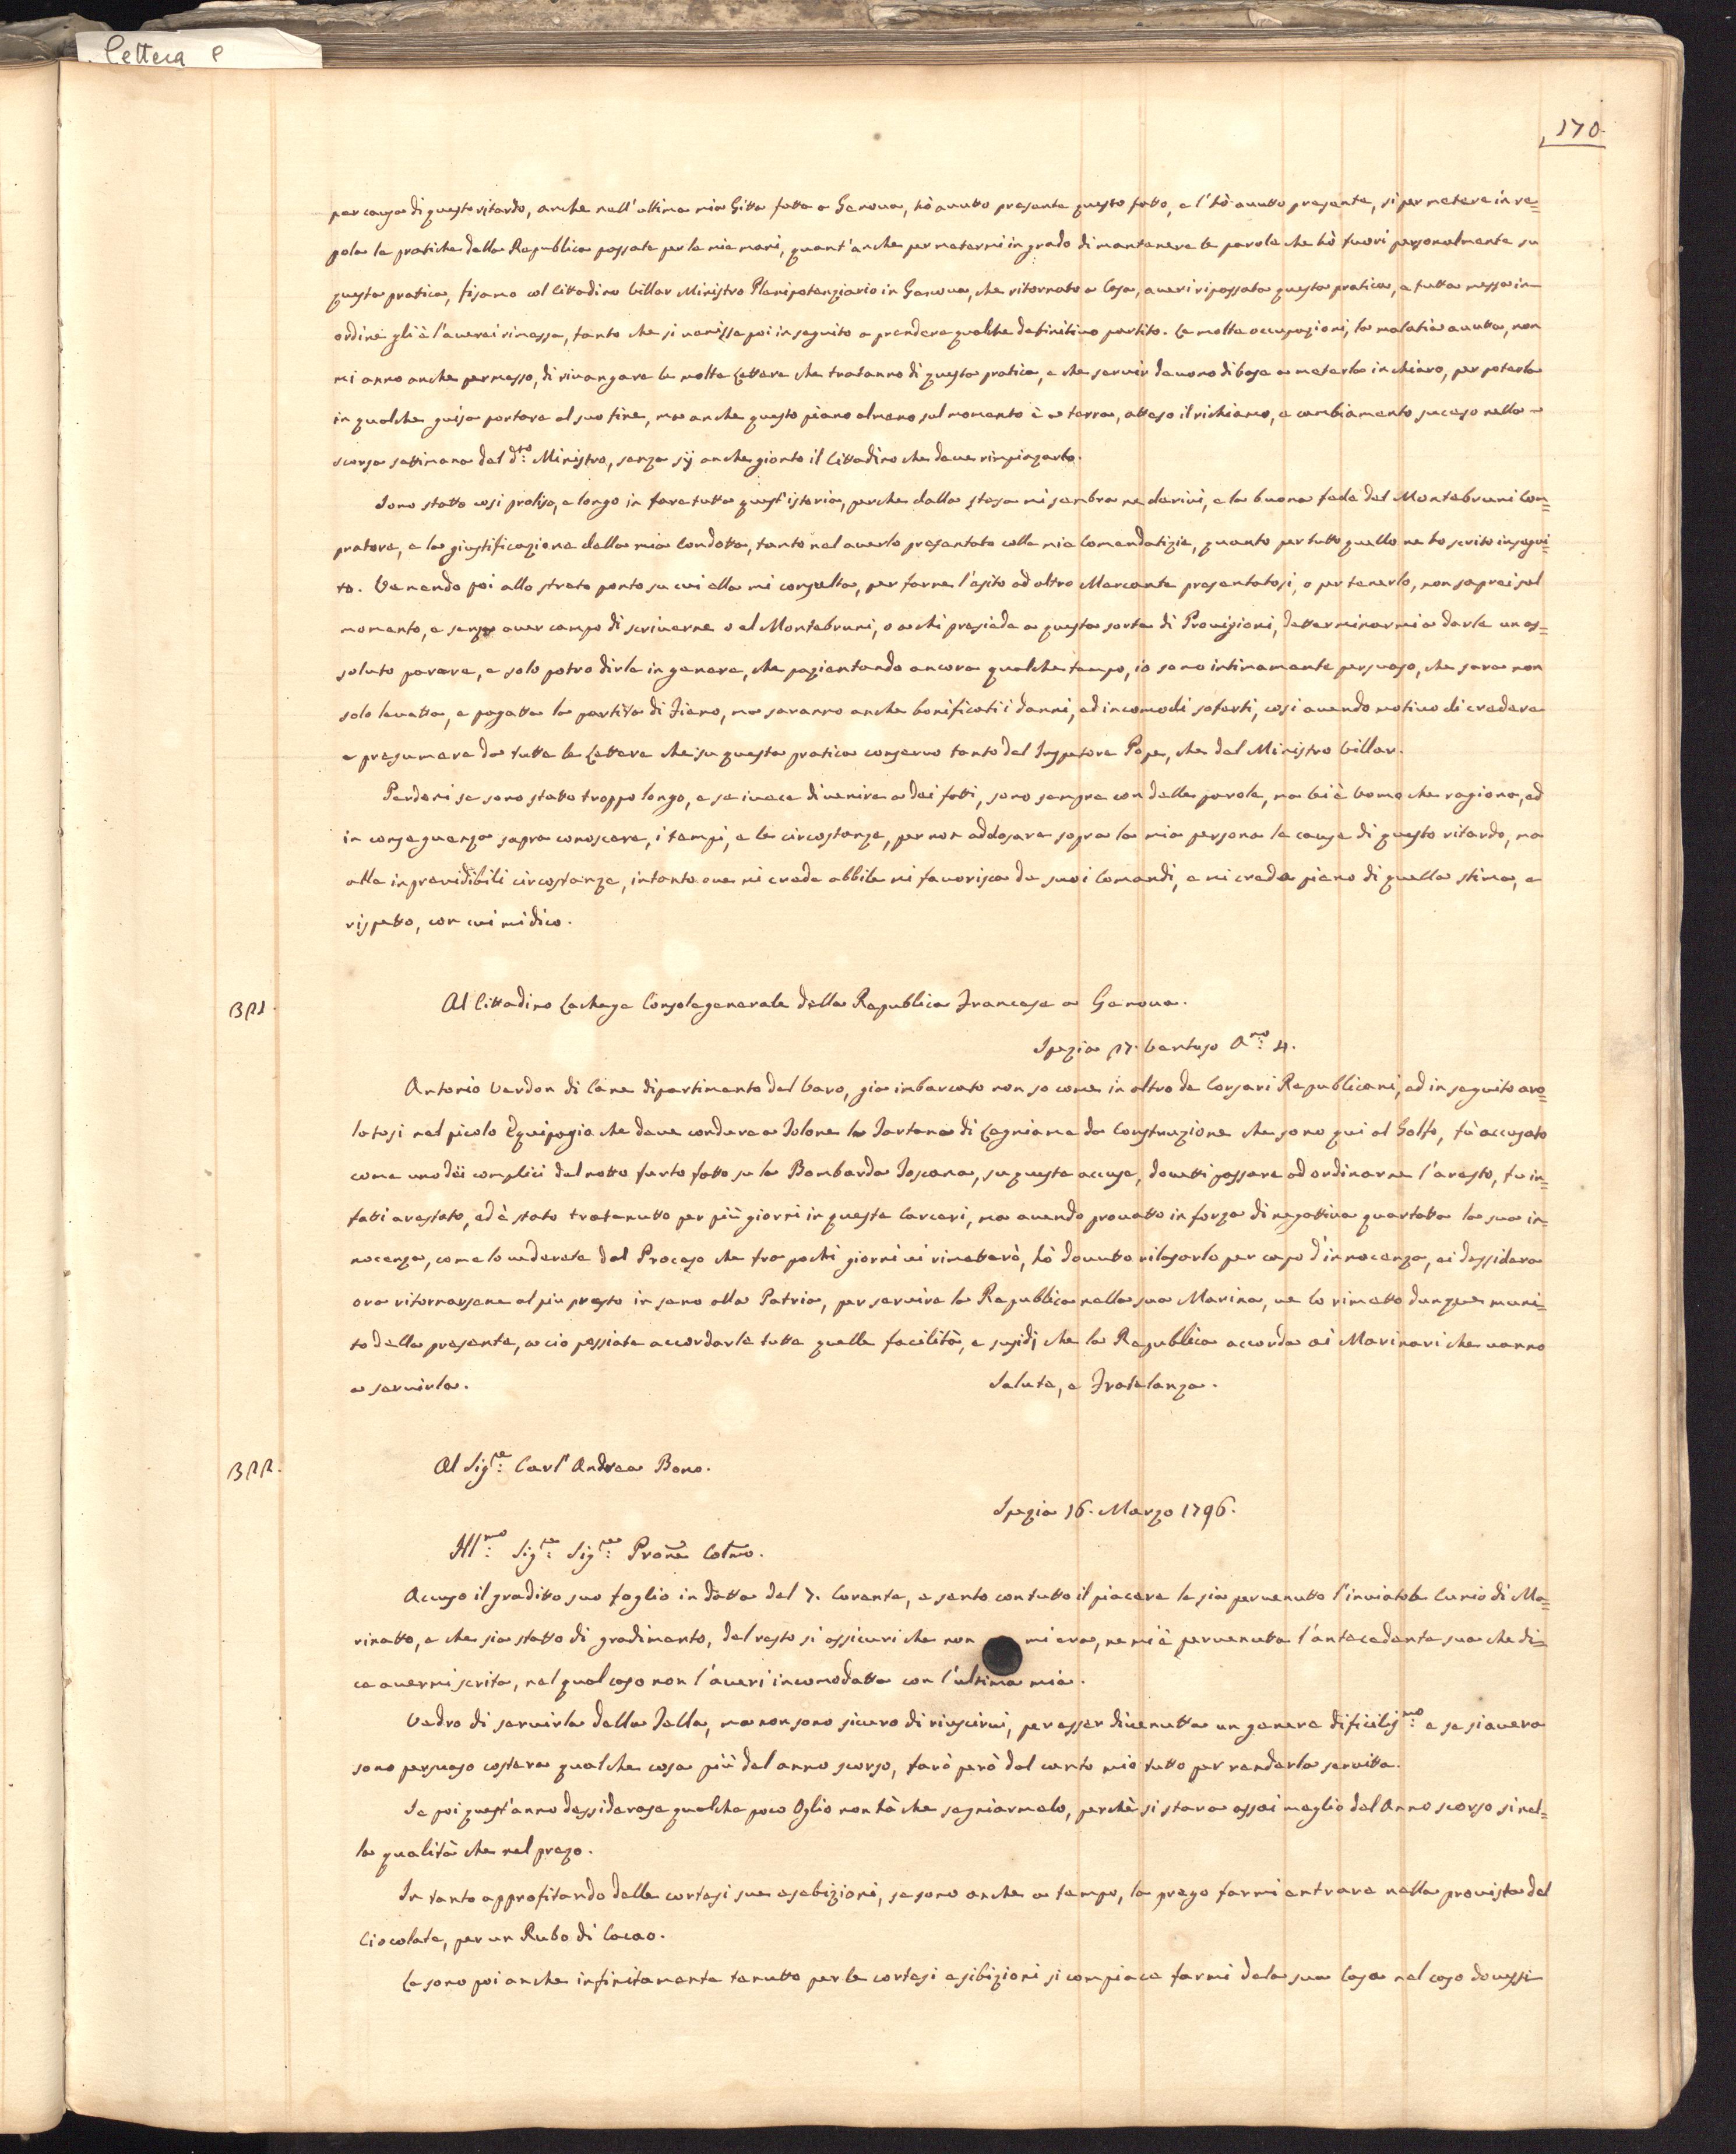 Lettera e
170.
per causa di questo ritardo, anche nell'ultima mia Gitta fatta a Genova, hò avutto presente questo fatto, e l'hò avutto presente, si per metere in re=
gola le pratiche della Republica passate per le mie mani, quant'anche per metermi in grado di mantenere le parole che hò fuori personalmente su
questa pratica, fisamo col Cittadino Villar Ministro Plenipotenziario in Genova, che ritornato a Casa, averei ripassata questa pratica, e tutta messa in
ordine gli è l'averei rimessa, tanto che si venisse poi in seguito a prendere qualche definitivo partito. Le molte occupazioni, la malatia avutta, non
mi anno anche permesso, di rivangare le molte Lettere che trattanno di questa pratica, e che servir devono di base a meterla in chiaro, per poterla
in qualche guisa portare al suo fine, ma anche questo piano almeno sul momento è a terra, atteso il richiamo, e cambiamento suceso nella
scorsa settimana del d.to Ministro, senza sij anche gionto il Cittadino che deve rimpiazarlo.
Sono statto cosi proliso, e longo in fare tutta quest'istoria, perche dalla stesa mi sembra ne derivi, e la buona fede del Montebruni Com=
pratore, e la giustificazione della mia Condotta, tanto nel averlo presentato colle mie Comendatizie, quanto per tutto quello ne ho scrito in segui=
to. Venendo poi allo streto ponto su cui ella mi consulta, per farne l'esito ad altro Mercante presentatosi, o per tenerlo, non saprei sul
momento, e senza aver campo di scriverne o al Montebruni, o a chi presiede a questa sorta di Provigioni, detterminarmi a darle un as=
soluto parere, e solo potro dirle in genere, che pazientando ancora qualche tempo, io sono intimamente persuaso, che sara non
solo levatta, e pagatta la partita di Fieno, ma saranno anche bonificati i danni, ed incomodi soferti, cosi avendo motivo di credere
e presumere da tutte le Lettere che su questa pratica conservo tanto del Inspetore Pepe, che del Ministro Villar.
Perdoni se sono statto troppo longo, e se invece di venire a dei fatti, sono sempre con delle parole, ma lei è Uomo che ragiona, ed
in conseguenza sapra conoscere, i tempi, e le circostanze, per non addosare sopra la mia persona le cause di questo ritardo, ma
alle inprevidibili circostanze, intanto ove mi crede abbile mi favorisca de suoi Comandi, e mi creda pieno di quella stima, e
rispetto, con cui mi dico.
Al Cittadino Lachege Consolegenerale della Republica Francese a Genova.
Spezia 27. Ventoso A.no 4.
Antonio Verdon di Cane dipartimento del Varo, gia imbarcato non so come in oltro de Corsari Republicani, ed in seguito aro=
latosi nel picolo Equipagio che deve condure a Tolone la Tartana di Legniame da Construzione che sono qui al Golfo, fù accusato
come uno dei complici del notto furto fatto su la Bombarda Toscana, su queste accuse, dovetti passare ad ordinarne l'aresto, fu in=
fatti arestato, ed è stato tratenutto per più giorni in queste Carceri, ma avendo provatto in forza di negattiva quartatta la sua in=
nocenza, come lo vederete dal Proceso che fra pochi giorni vi rimetterò, hò dovutto rilasarlo per capo d'innocenza, ei dessidera
ora ritornarsene al piu presto in seno alla Patria, per servire la Republica nella sua Marina, ve lo rimetto dunque muni=
to della presente, a cio possiate accordarle tutte quelle facilità, e susidj che la Republica accorda ai Marinari che vanno
a servirla. Salute, e Fratelanza.
Al Sig.re Carl'Andrea Bono.
Spezia 16. Marzo 1796.
Ill.mo Sig.re Sig.re Prone Colmo.
Accuso il graditto suo foglio in datta del 7. Corente, e sento con tutto il piacere le sia pervenutto l'inviatole Cunio di Ma=
rinatto, e che sia statto di gradimento, del resto si assicuri che non mi era, ne mi è pervenutta l'antecedente sua che di=
ce avermi scrita, nel qual caso non l'averi incomodatta con l'ultima mia.
Vedro di servirla della Tella, ma non sono sicuro di riuscirvi, per esser divenutta un genere dificilis.mo e se si avera
sono persuaso costera qualche cosa più del anno scorso, farò però dal canto mio tutto per renderla servitta.
Se poi quest'anno dessiderase qualche poco Oglio non hà che segniarmelo, perchè si stara assai meglio del Anno scorso si nel=
la qualità che nel prezo.
In tanto approfitando delle cortesi sue esebizioni, se sono anche a tempo, la prego farmi entrare nella provista del
Ciocolate, per un Rubo di Cacao.
Le sono poi anche infinitamente tenutto per le cortesi esibizioni si compiace farmi dela sua Casa nel caso dovessi